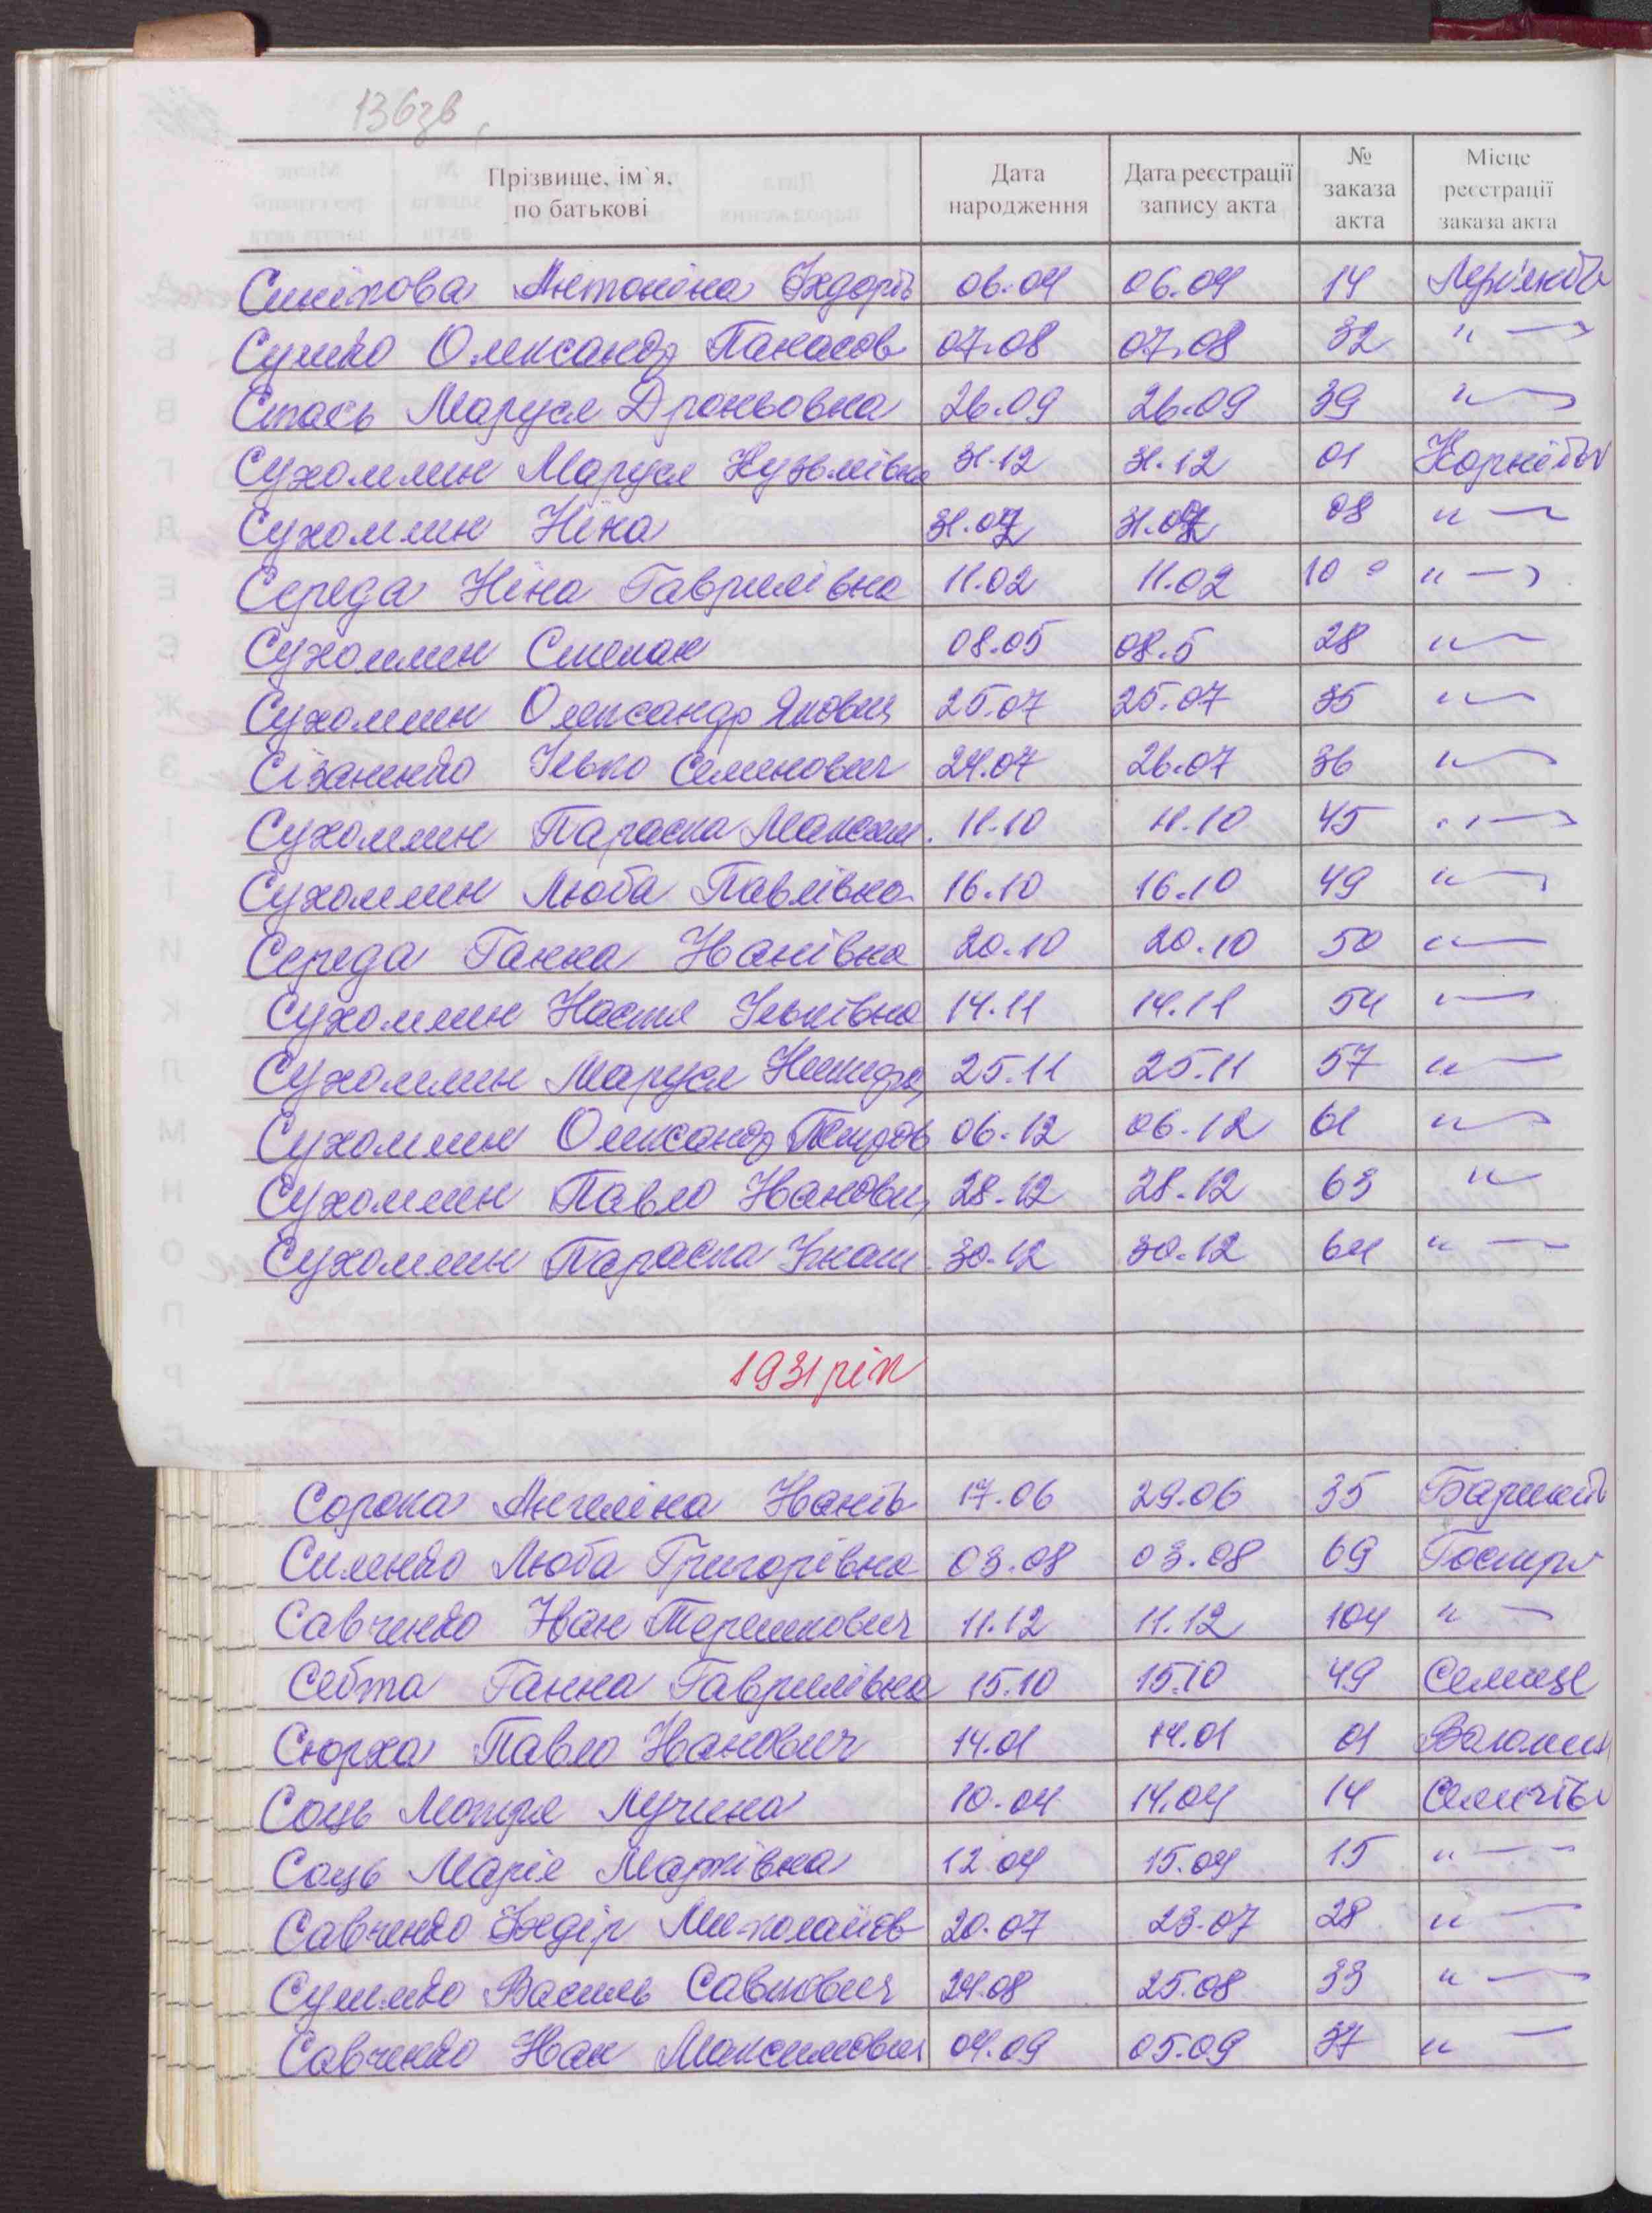 136зв
Прізвище, ім`я, по батькові Дата народження Дата реєстрації запису акта № заказа акта Місце реєстрації заказа акта
Антоніна 06.04 06.04 14
Сушко Олександр Панасов 07.08 07.08 32 " —
Стась Маруся 26.09 26.09 39 " —
Сухомлин Маруся Кузьмівна 31.12 31.12 01
Сухомлин Ніна 31.07 31.07 08 " —
Середа Ніна Гаврилівна 11.02 11.02 10 " —
Сухомлин Степан 08.05 08.5 28 " —
Сухомлин Олександр Якович 25.07 25.07 35 " —
Сізаненко Ілько Семенович 24.07 26.07 36 " —
Сухомлин Параска Максим. 11.10 11.10 45 " —
Сухомлин Люба Павлівна 16.10 16.10 49 " —
Середа Ганна Іванівна 20.10 20.10 50 " —
Сухомлин Настя Ільківна 14.11 14.11 54 " —
Сухомлин Маруся 25.11 25.11 57 " —
Сухомлин Олександр 06.12 06.12 61 " —
Сухомлин Павло Іванови 28.12 28.12 63 "
Сухомлин Параска Ігнат 30.12 30.12 64 " —
1931 рік
Сорока Ангеліна Іванів 17.06 29.06 35
Силенко Люба Григорівна 03.08 03.08 69
Савченко Іван Терешкович 11.12 11.12 104 " —
Ганна Гаврилівна 15.10 15.10 49
Сюрха Павло Іванович 14.01 14.01 01
Соць Мотря 10.04 14.04 14
Соць Марія Марківна 12.04 15.04 15 " —
Савченко Федір Миколайов 20.07 23.07 28 " —
Василь Савкович 24.08 25.08 33 " —
Савченко Іван Максимович 04.09 05.09 37 " —